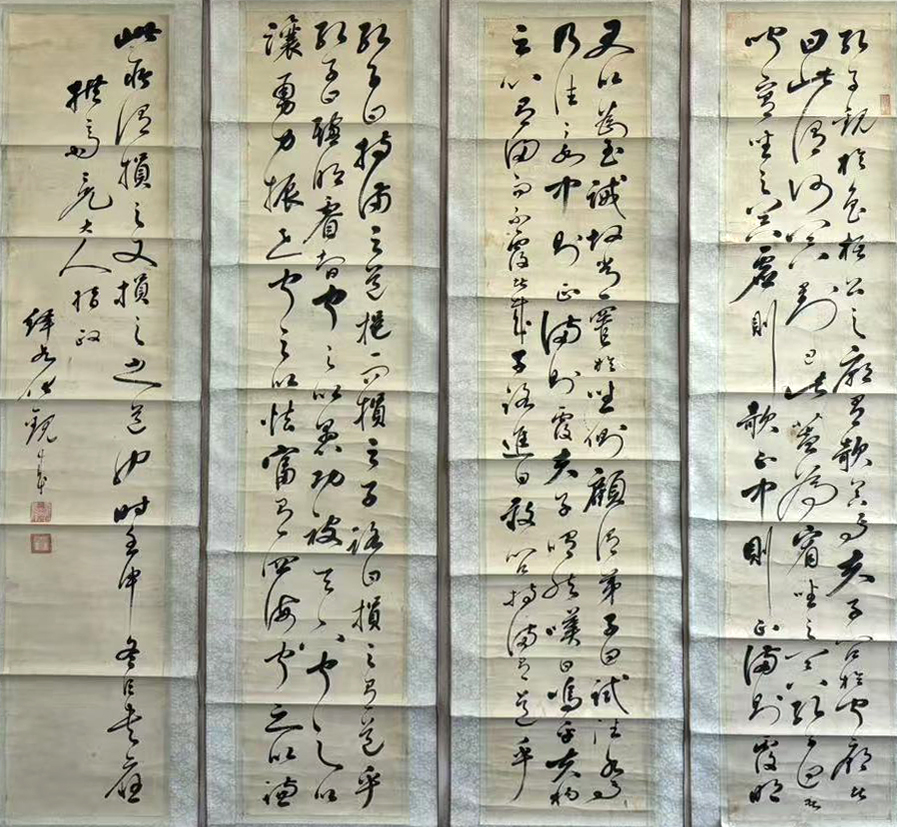 孔子觀於魯桓公之廟有欹器焉夫子問於守廟者
曰此謂何器對曰此蓋為宥坐之器孔子曰吾
聞宥坐之器虛則欹中則正滿則覆明
君以為至誡故常置於坐側顧謂弟子曰試注水焉
乃注之水中則正滿則覆夫子喟然嘆曰嗚呼夫物
惡有滿而不覆者哉子路進曰敢問持滿有道乎
孔子曰持滿之道挹而損之子路曰損之有道乎
孔子曰聰明睿智守之以愚功被天下守之以
讓勇力振世守之以怯富有四海守之以謙
此所謂損之又損之之道也時壬申冬日書應
大人指政
觀成